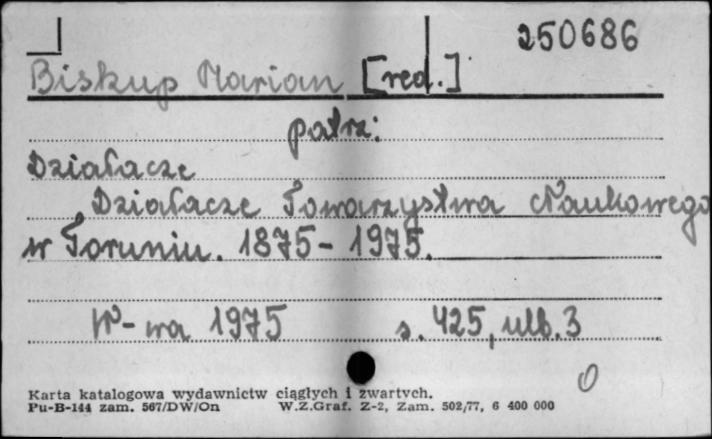 250686
Biskup Marian [red.]
patrz:
Działacze
Działacze Towarzystwa Naukowego
w Toruniu. 1875-1975.
W-wa 1975 s. 425, ulb. 3
0
Karta katalogowa wydawnictw ciągłych i zwartych.
Pu-B-144 zam. 567/DW/On W.Z.Graf. Z-2, Zam. 502/77, 6 400 000